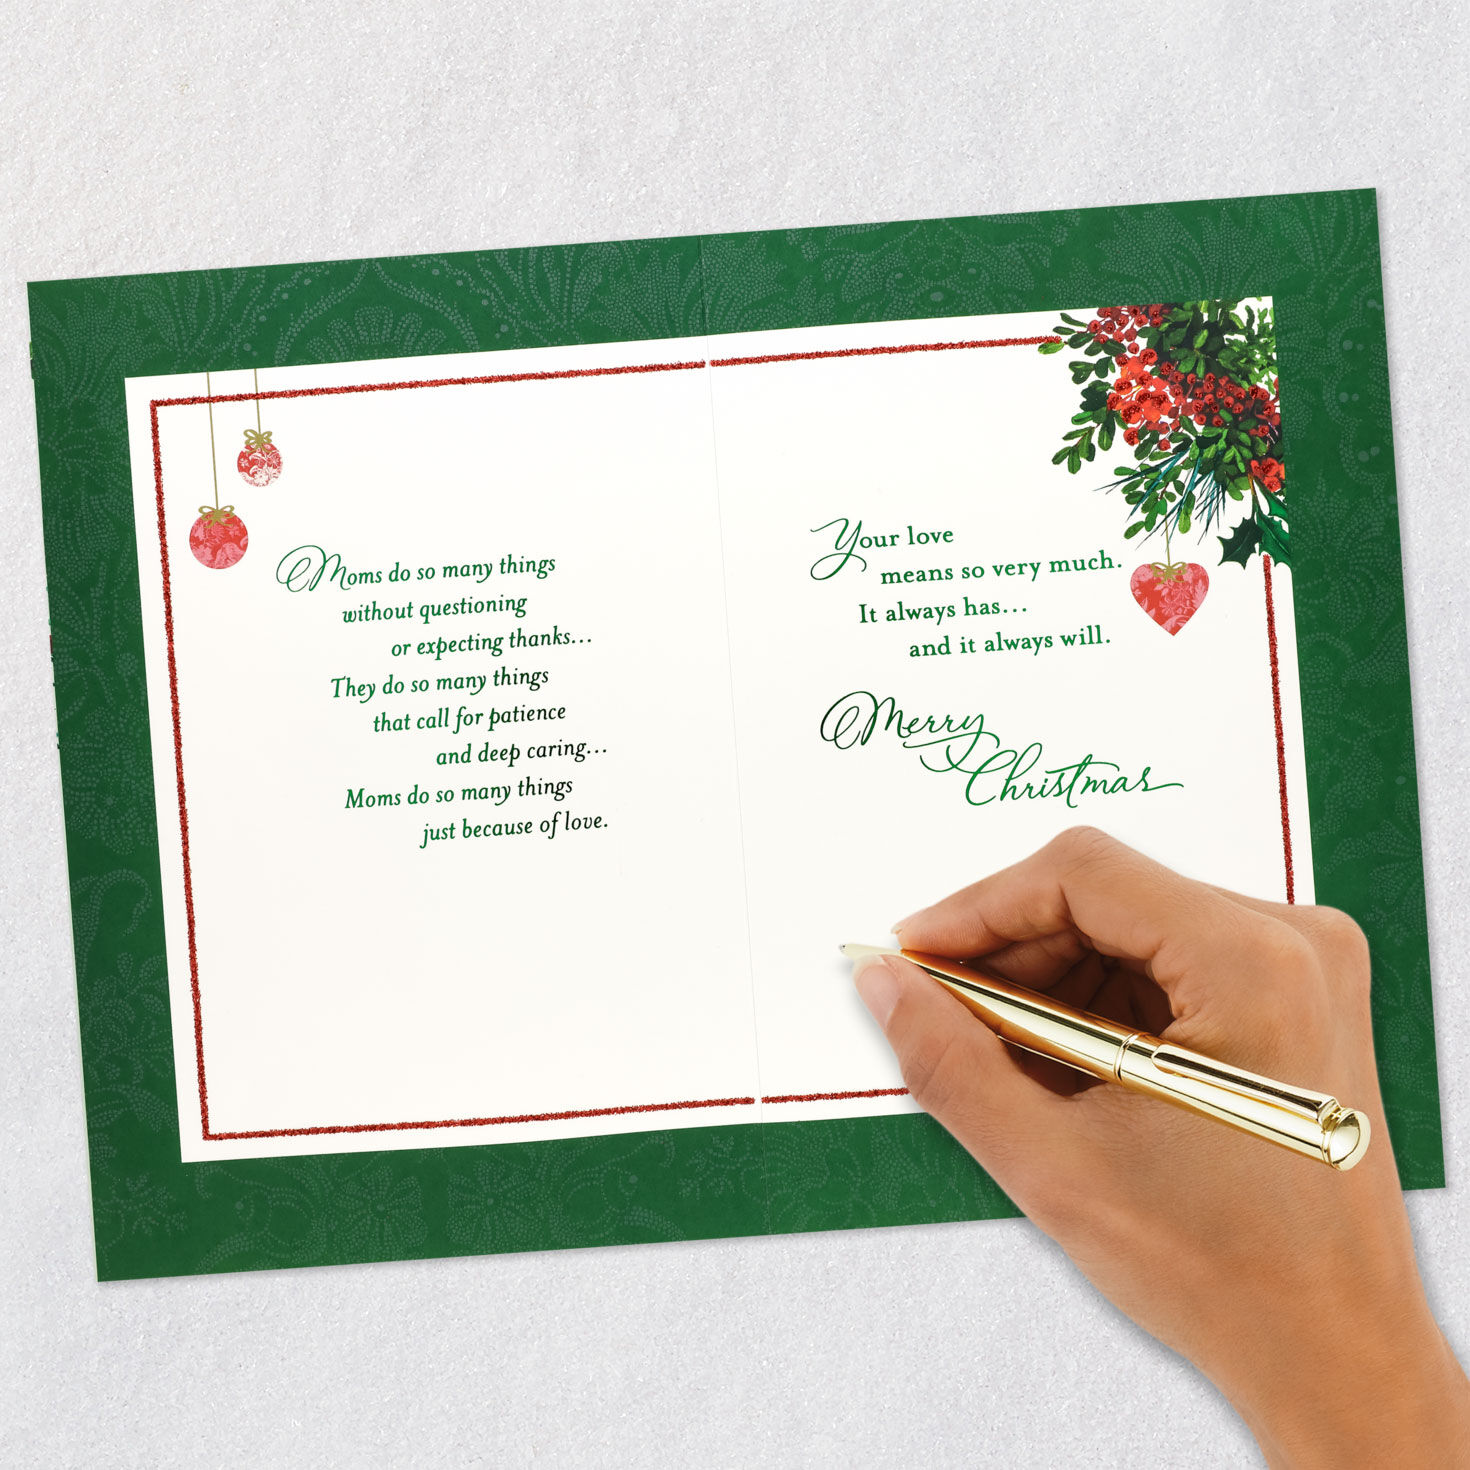 Moms do so many things
without questioning
or expecting thanks...
They do so many things
that call for patience
and deep caring...
Moms do so many things
just because of love.
Your love
means so very much.
It always has...
and it always will.
Merry
Christmas